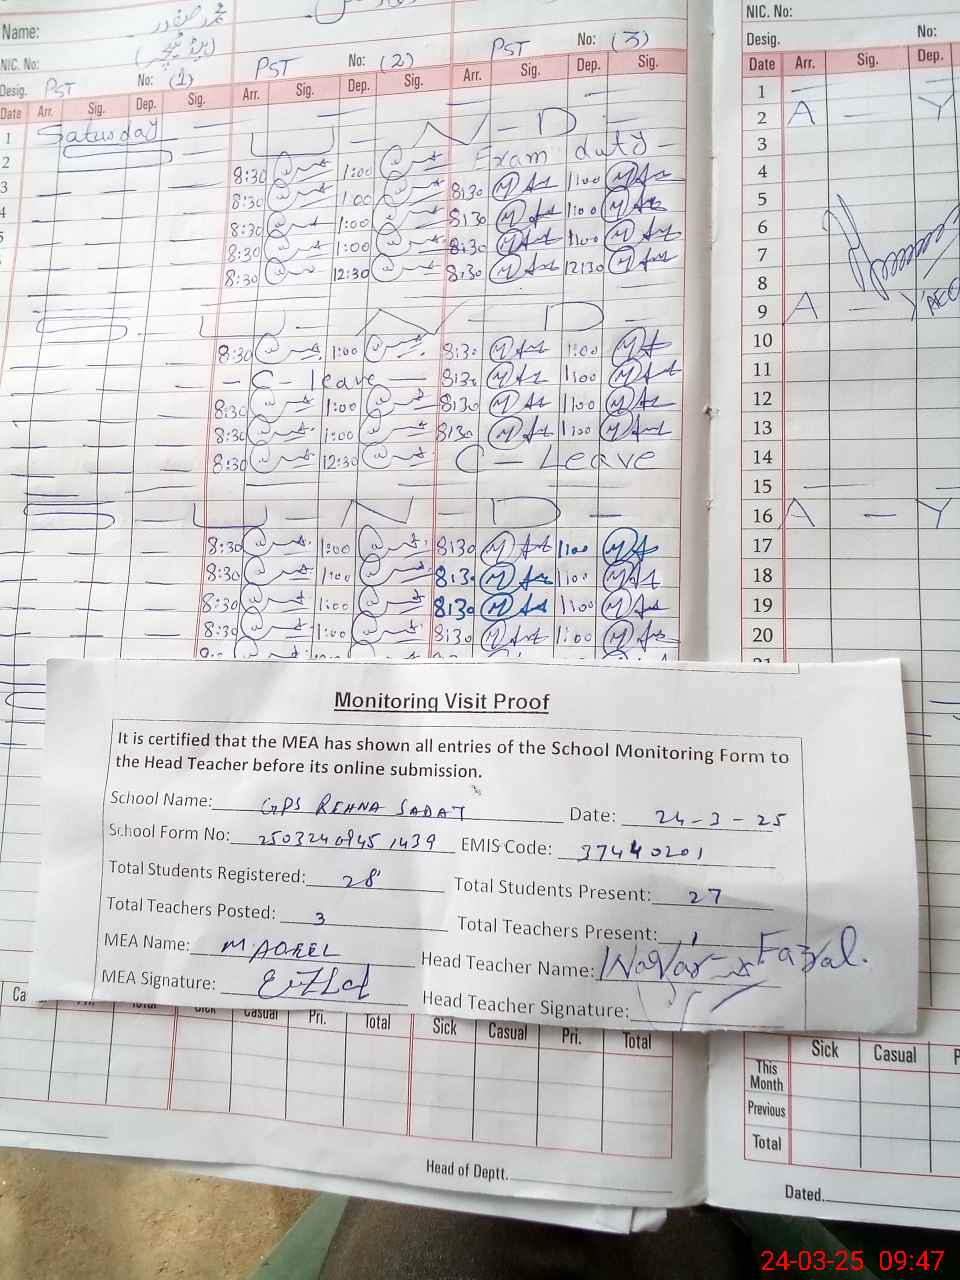 Name: محمد صفدر
NIC. No: (ہیڈ ٹیچر)
Desig. PST No: (1) PST No: (2) PST No: (3)
Date Arr. Sig. Dep. Sig. Arr. Sig. Dep. Sig. Arr. Sig. Dep. Sig.
1 Saturday
2 U - N - D -
3 8:30 1:00 Exam duty -
4 8:30 1:00 8:30 1:00
8:30 1:00 8:30 1:00
8:30 1:00 8:30 1:00
8:30 12:30 8:30 12:30
U - N - D -
8:30 1:00 8:30 1:00
- C - leave - 8:30 1:00
8:30 1:00 8:30 1:00
8:30 1:00 8:30 1:00
8:30 12:30 C - Leave
U - N - D -
8:30 1:00 8:30 1:00
8:30 1:00 8:30 1:00
8:30 1:00 8:30 1:00
8:30 1:00 8:30 1:00
NIC. No:
Desig. No:
Date Arr. Sig. Dep.
1
2 A - Y
3
4
5
6
7
8
9 A - Y
10
11
12
13
14
15
16 A - Y
17
18
19
20
21
Monitoring Visit Proof
It is certified that the MEA has shown all entries of the School Monitoring Form to
the Head Teacher before its online submission.
School Name: GPS REHNA SADAT Date: 24-3-25
School Form No: EMIS Code: 37440201
Total Students Registered: 28 Total Students Present: 27
Total Teachers Posted: 3 Total Teachers Present: 1
MEA Name: M AQEEL Head Teacher Name: Fazal.
MEA Signature: Head Teacher Signature:
Ca Pri. Total Sick Casual Pri. Total Sick Casual Pri. Total
Sick Casual P
This Month
Previous
Total
Head of Deptt.
Dated.
24-03-25 09:47